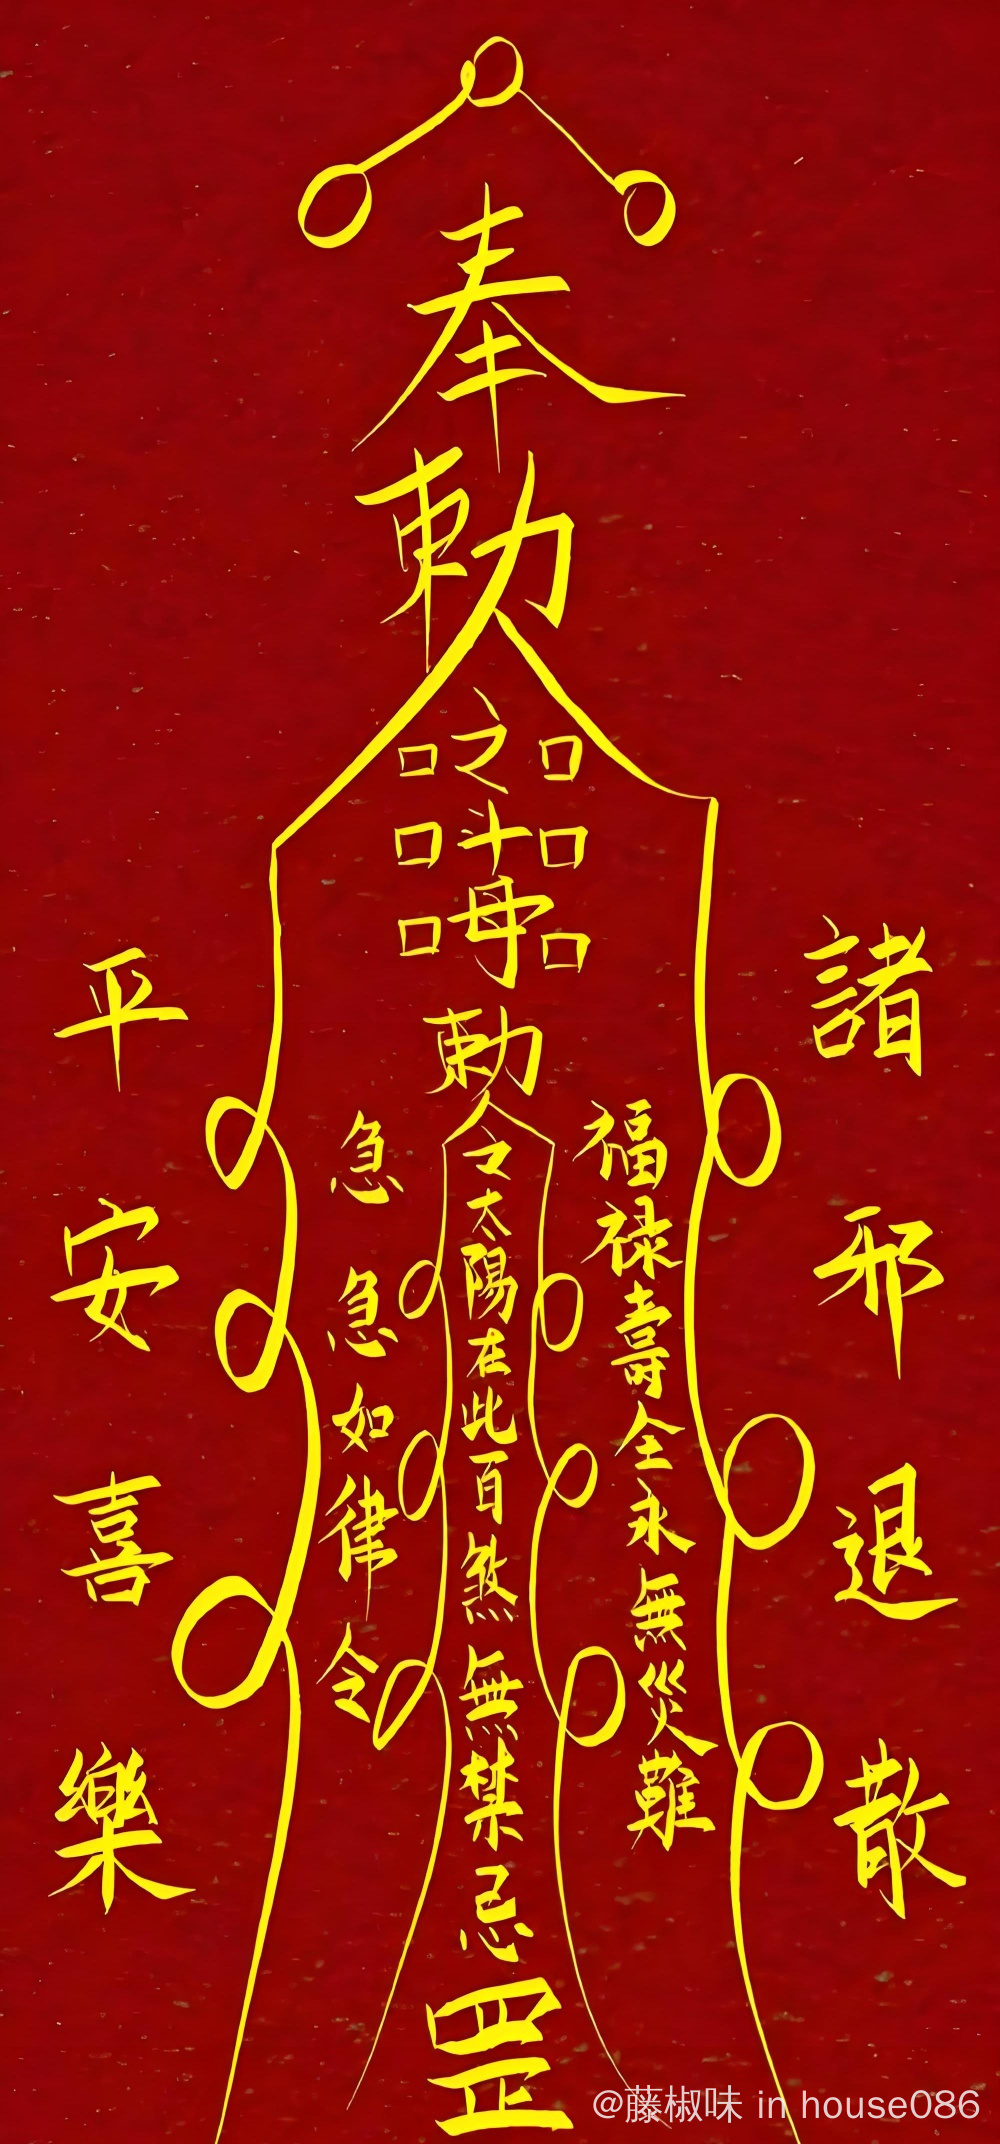 奉
勅
之
斗
母
勅
令太陽在此百煞無禁忌
罡
福祿壽全永無災難
急急如律令
諸邪退散
平安喜樂
@藤椒味 in house086